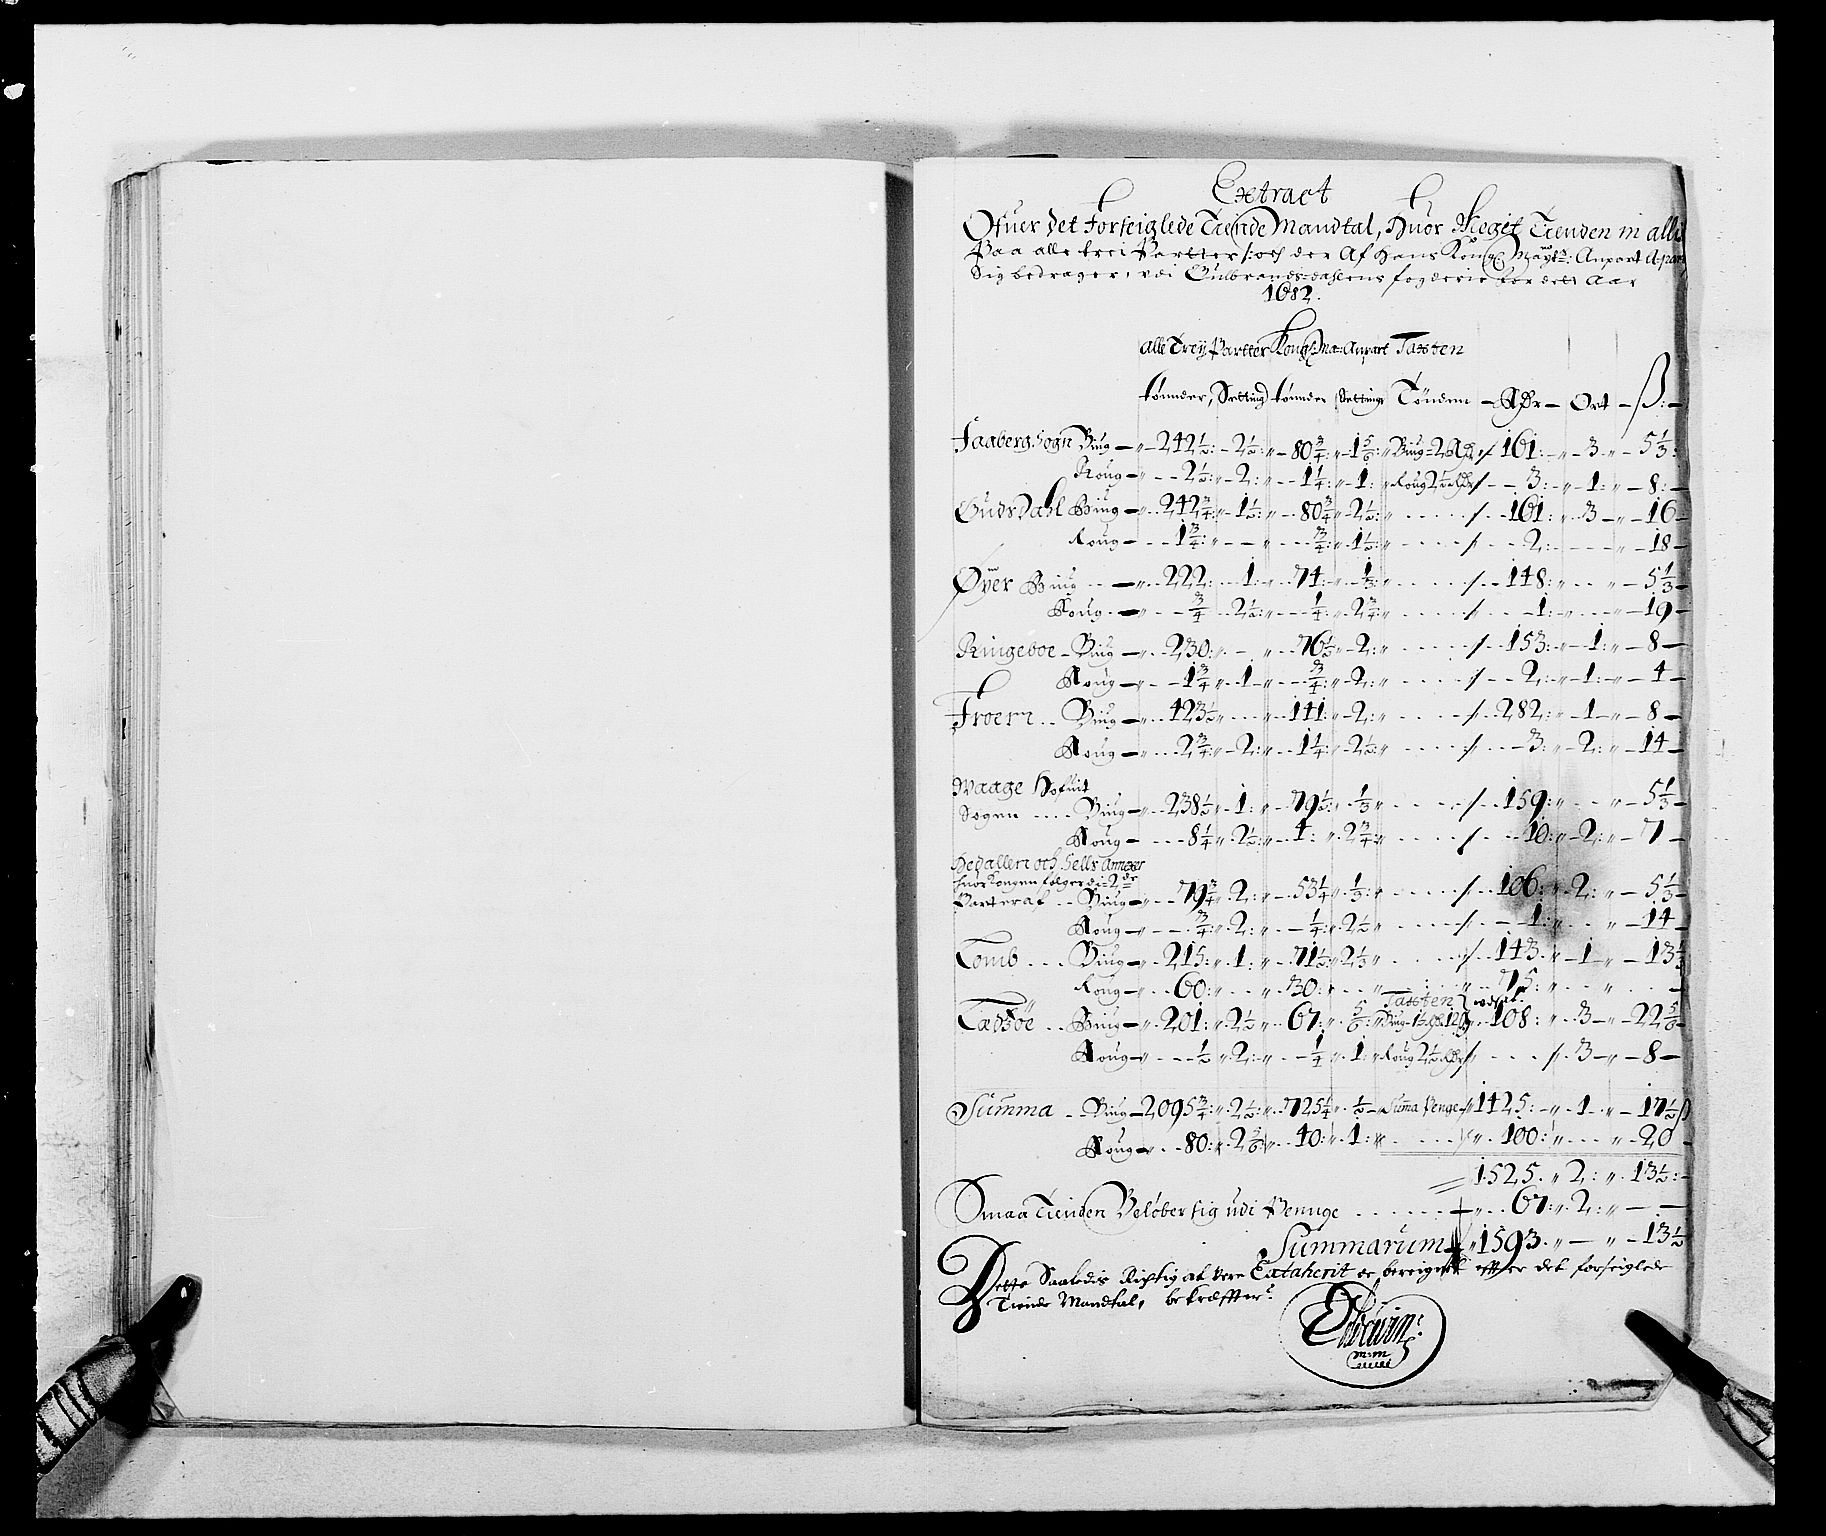 Extract
Ofuer det forseiglede Tiende Mandtal, huor Meget Tienden in alles
Paa alle trei Partter, och der Af hans Kong: Mayts: Anpart A part
Sig bedrager, udi Gulbrands-dahlens fogderie for dett Aar
1682.
Alle Treÿ Partter Kongl: Ma: Anpart Taxten
tönnder, Setting tönnder Setting Tönden - Rdr - Ort - ß: -
Faaberg Sogn Biug - 242½: - 2½: - 80¾: - 1⅚ Biug - 2 Rdr / 161: - 3 - 5⅓:
Roug - 2½: - 2: - 1¼: - 1: Roug 2½ Rdr / - 3: - 1: - 8: -
Gudsdahl Biug - 242¾: - 1½: - 80¾: - 2½: / 161: 3 - 16
Roug - 1¾: - ¾: - 1½: / 2: - 18 -
Øyer Biug - 222: 1: 74: ⅓: / 148: - 5⅓ -
Roug - ¾ 2½: ¼: 2¾: / 1: - 19 -
Ringeboe - Biug - 230: 76½ - 2: / 153: - 1: - 8 -
Roug - 1¾ - 1 - ¾: 2: / 2: - 1: - 4
Froen .. Biug - 423½ 141: 2: / 282: - 1 - 8 -
Roug - 2¾: - 2: - 1¼: - 2½: / 3: - 2: - 14 -
Waage Hofuit
Sogen .... Biug - 238½ - 1: - 79½: ⅓ / 159: - 5⅓ -
Roug - 8¼ - 2½: - 1: 2¾: / 10: - 2: - 7 -
Hedallen och Sells Annexer
huor Kongen følger di 2de
Parter af .. Biug - 79¾ - 2: - 53¼ ⅓ / 106: - 2: - 5⅓ -
Roug - ¾: - 2: - ¼: 2½ / - 1: - 14 -
Lomb ... Biug - 215: 1: - 71½: 2⅓ / 143: - 1 - 13⅓
Roug - 60: 30: 75:
Taxten
Ledsøe .. Biug - 201: 2½ - 67: ⅚ Biug - 1½ 108: - 3 - 22⅚
Roug - ½ - 2: - ¼ 1: Roug 2½ Rdr / / 3 - 8 -
Summa - Biug - 2095¾: 2½: 725¼ ½ - Suma Penge - 1425: - 1 - 17½ ß
Roug - 80: 2⅚ - 40: 1: 100: 20 -
1525. 2: 13½: -
Smaa Tienden Beløber sig udi Penuge ...... 67: 2: - -
Summarum 1593. - 13½
Dette Saaledis Rigtig at vere Extaherit oc bereignit effter det forseiglede
Tiende Mandtal, bekræffter:
m:m